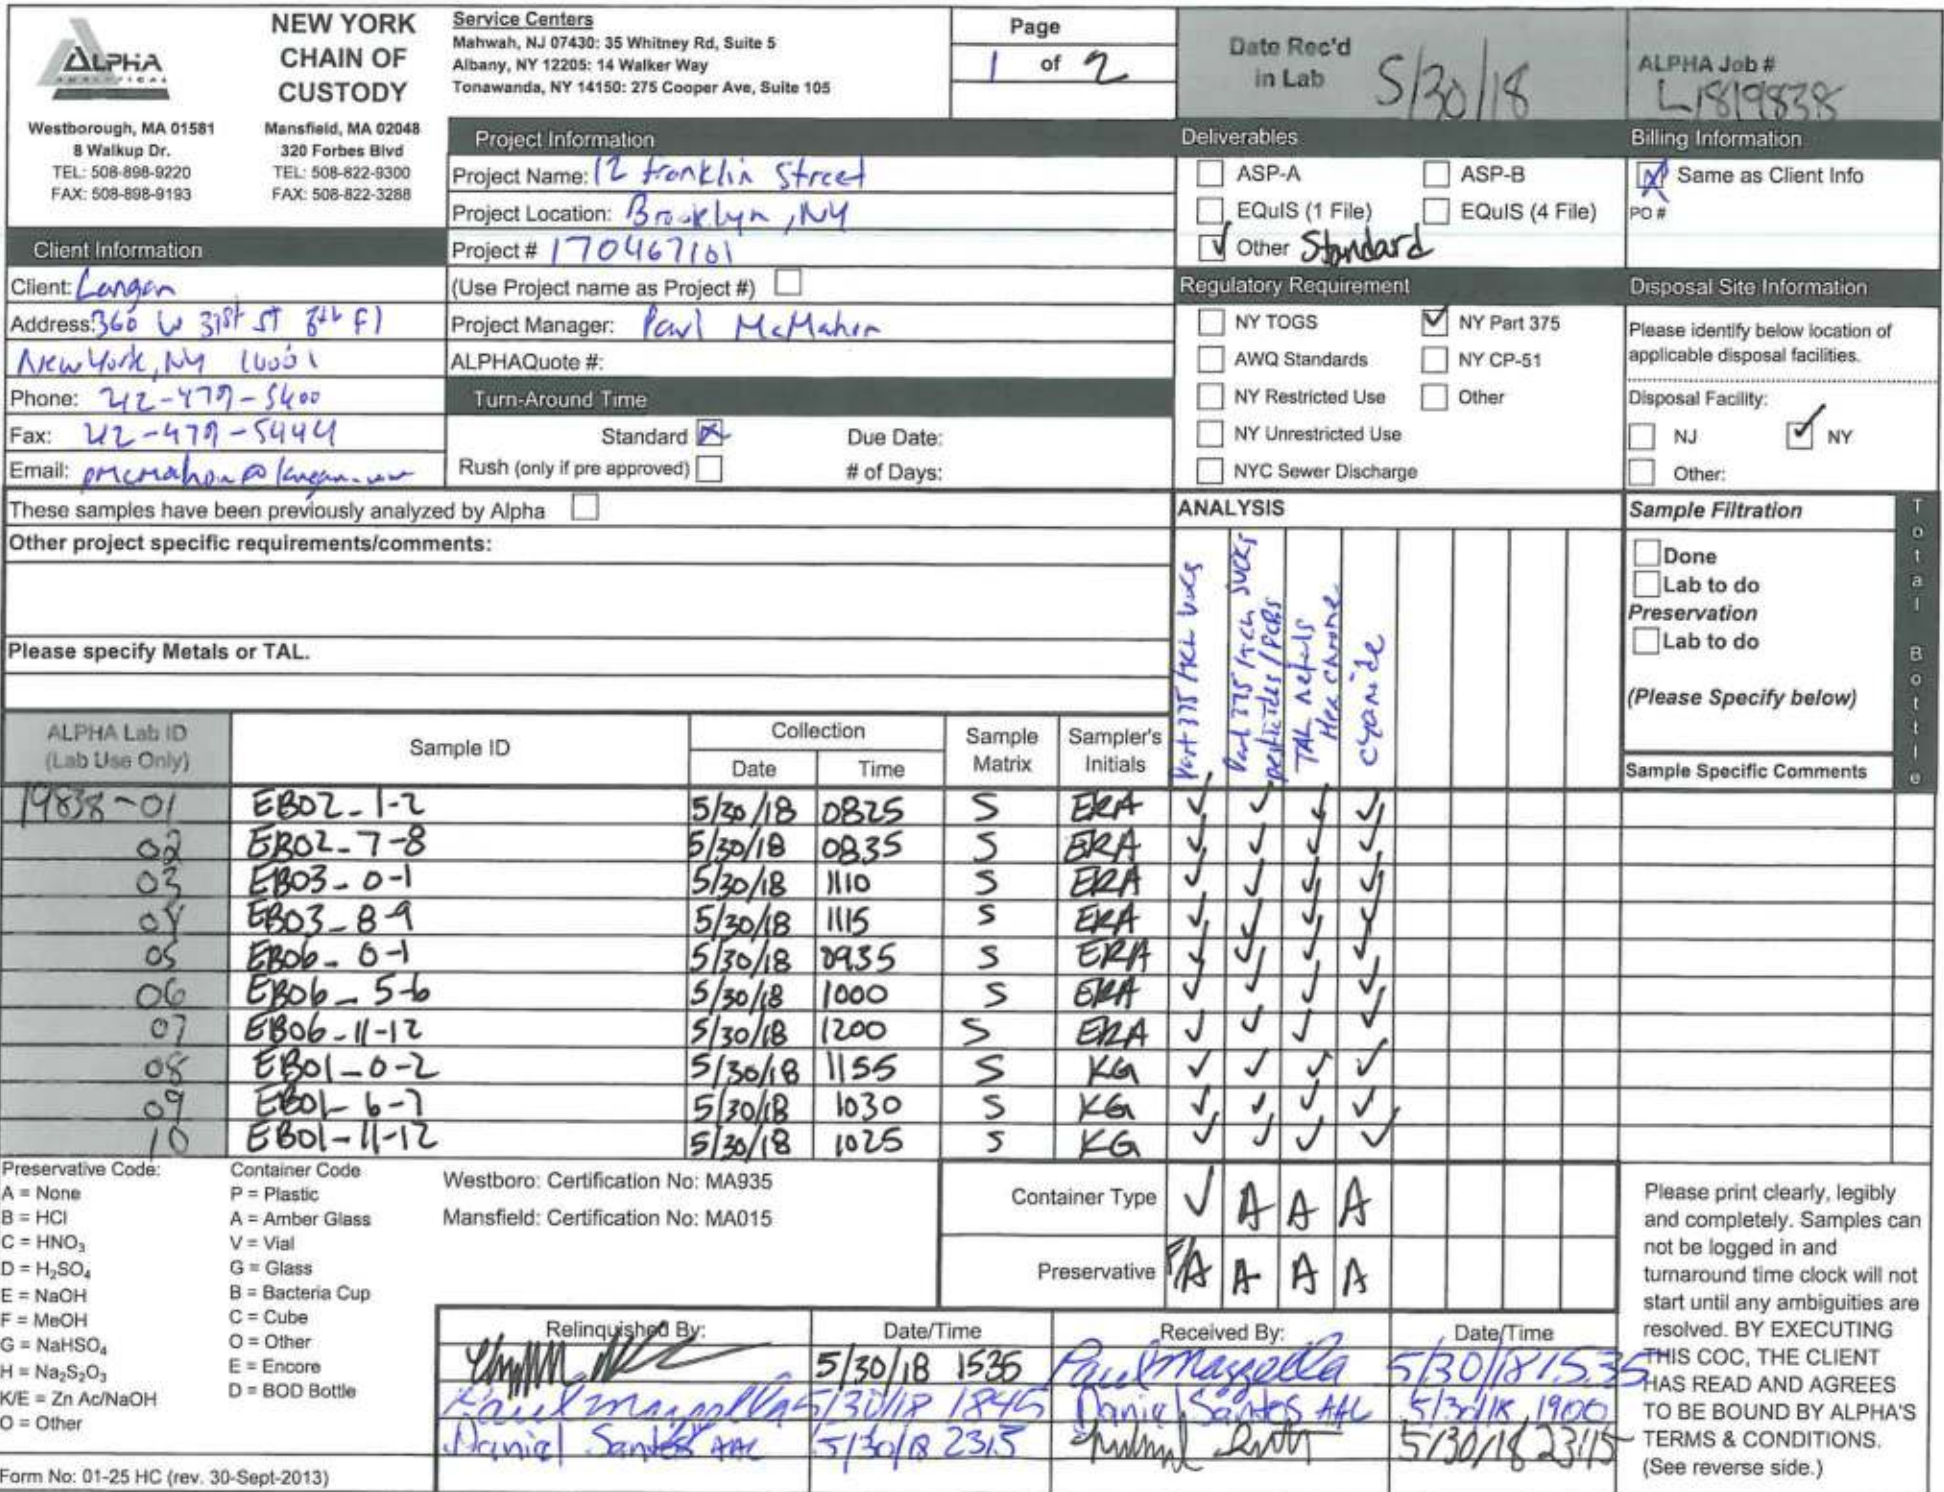 ALPHA
ANALYTICAL
NEW YORK
CHAIN OF
CUSTODY
Westborough, MA 01581
8 Walkup Dr.
TEL: 508-898-9220
FAX: 508-898-9193
Mansfield, MA 02048
320 Forbes Blvd
TEL: 508-822-9300
FAX: 508-822-3288
Service Centers
Mahwah, NJ 07430: 35 Whitney Rd, Suite 5
Albany, NY 12205: 14 Walker Way
Tonawanda, NY 14150: 275 Cooper Ave, Suite 105
Page
1 of 2
Date Rec'd
in Lab 5/30/18
ALPHA Job #
L1819838
Project Information
Project Name: 12 Franklin Street
Project Location: Brooklyn, NY
Project # 170467101
(Use Project name as Project #)
Project Manager: Paul McMahon
ALPHAQuote #:
Client Information
Client: Langan
Address: 360 W 31st ST 8th Fl
New York, NY 10001
Phone: 212-479-5400
Fax: 212-479-5444
Email: pmcmahon@langan.com
Turn-Around Time
Standard Due Date:
Rush (only if pre approved) # of Days:
Deliverables
ASP-A ASP-B
EQuIS (1 File) EQuIS (4 File)
Other Standard
Regulatory Requirement
NY TOGS NY Part 375
AWQ Standards NY CP-51
NY Restricted Use Other
NY Unrestricted Use
NYC Sewer Discharge
Billing Information
Same as Client Info
PO #
Disposal Site Information
Please identify below location of
applicable disposal facilities.
Disposal Facility:
NJ NY
Other:
These samples have been previously analyzed by Alpha
Other project specific requirements/comments:
Please specify Metals or TAL.
ANALYSIS
Part 375 /TCL VOCs
Part 375 /TCL SVOCs
pesticides / PCBs
TAL metals
Hex chrome
Cyanide
Sample Filtration
Done
Lab to do
Preservation
Lab to do
(Please Specify below)
Sample Specific Comments
Total Bottle
ALPHA Lab ID
(Lab Use Only)
Sample ID
Collection
Date Time
Sample
Matrix
Sampler's
Initials
19838-01 EB02_1-2 5/30/18 0825 S ERA ✓ ✓ ✓ ✓
02 EB02_7-8 5/30/18 0835 S ERA ✓ ✓ ✓ ✓
03 EB03_0-1 5/30/18 1110 S ERA ✓ ✓ ✓ ✓
04 EB03_8-9 5/30/18 1115 S ERA ✓ ✓ ✓ ✓
05 EB06_0-1 5/30/18 0935 S ERA ✓ ✓ ✓ ✓
06 EB06_5-6 5/30/18 1000 S ERA ✓ ✓ ✓ ✓
07 EB06_11-12 5/30/18 1200 S ERA ✓ ✓ ✓ ✓
08 EB01_0-2 5/30/18 1155 S KG ✓ ✓ ✓ ✓
09 EB01_6-7 5/30/18 1030 S KG ✓ ✓ ✓ ✓
10 EB01_11-12 5/30/18 1025 S KG ✓ ✓ ✓ ✓
Preservative Code:
A = None
B = HCl
C = HNO₃
D = H₂SO₄
E = NaOH
F = MeOH
G = NaHSO₄
H = Na₂S₂O₃
K/E = Zn Ac/NaOH
O = Other
Container Code
P = Plastic
A = Amber Glass
V = Vial
G = Glass
B = Bacteria Cup
C = Cube
O = Other
E = Encore
D = BOD Bottle
Westboro: Certification No: MA935
Mansfield: Certification No: MA015
Container Type V A A A
Preservative F/A A A A
Relinquished By: Date/Time Received By: Date/Time
5/30/18 1535 Paul Mazzella 5/30/18 1535
Paul Mazzella 5/30/18 1845 Daniel Santos AAL 5/30/18 1900
Daniel Santos AAL 5/30/18 2315 5/30/18 23:15
Please print clearly, legibly
and completely. Samples can
not be logged in and
turnaround time clock will not
start until any ambiguities are
resolved. BY EXECUTING
THIS COC, THE CLIENT
HAS READ AND AGREES
TO BE BOUND BY ALPHA'S
TERMS & CONDITIONS.
(See reverse side.)
Form No: 01-25 HC (rev. 30-Sept-2013)